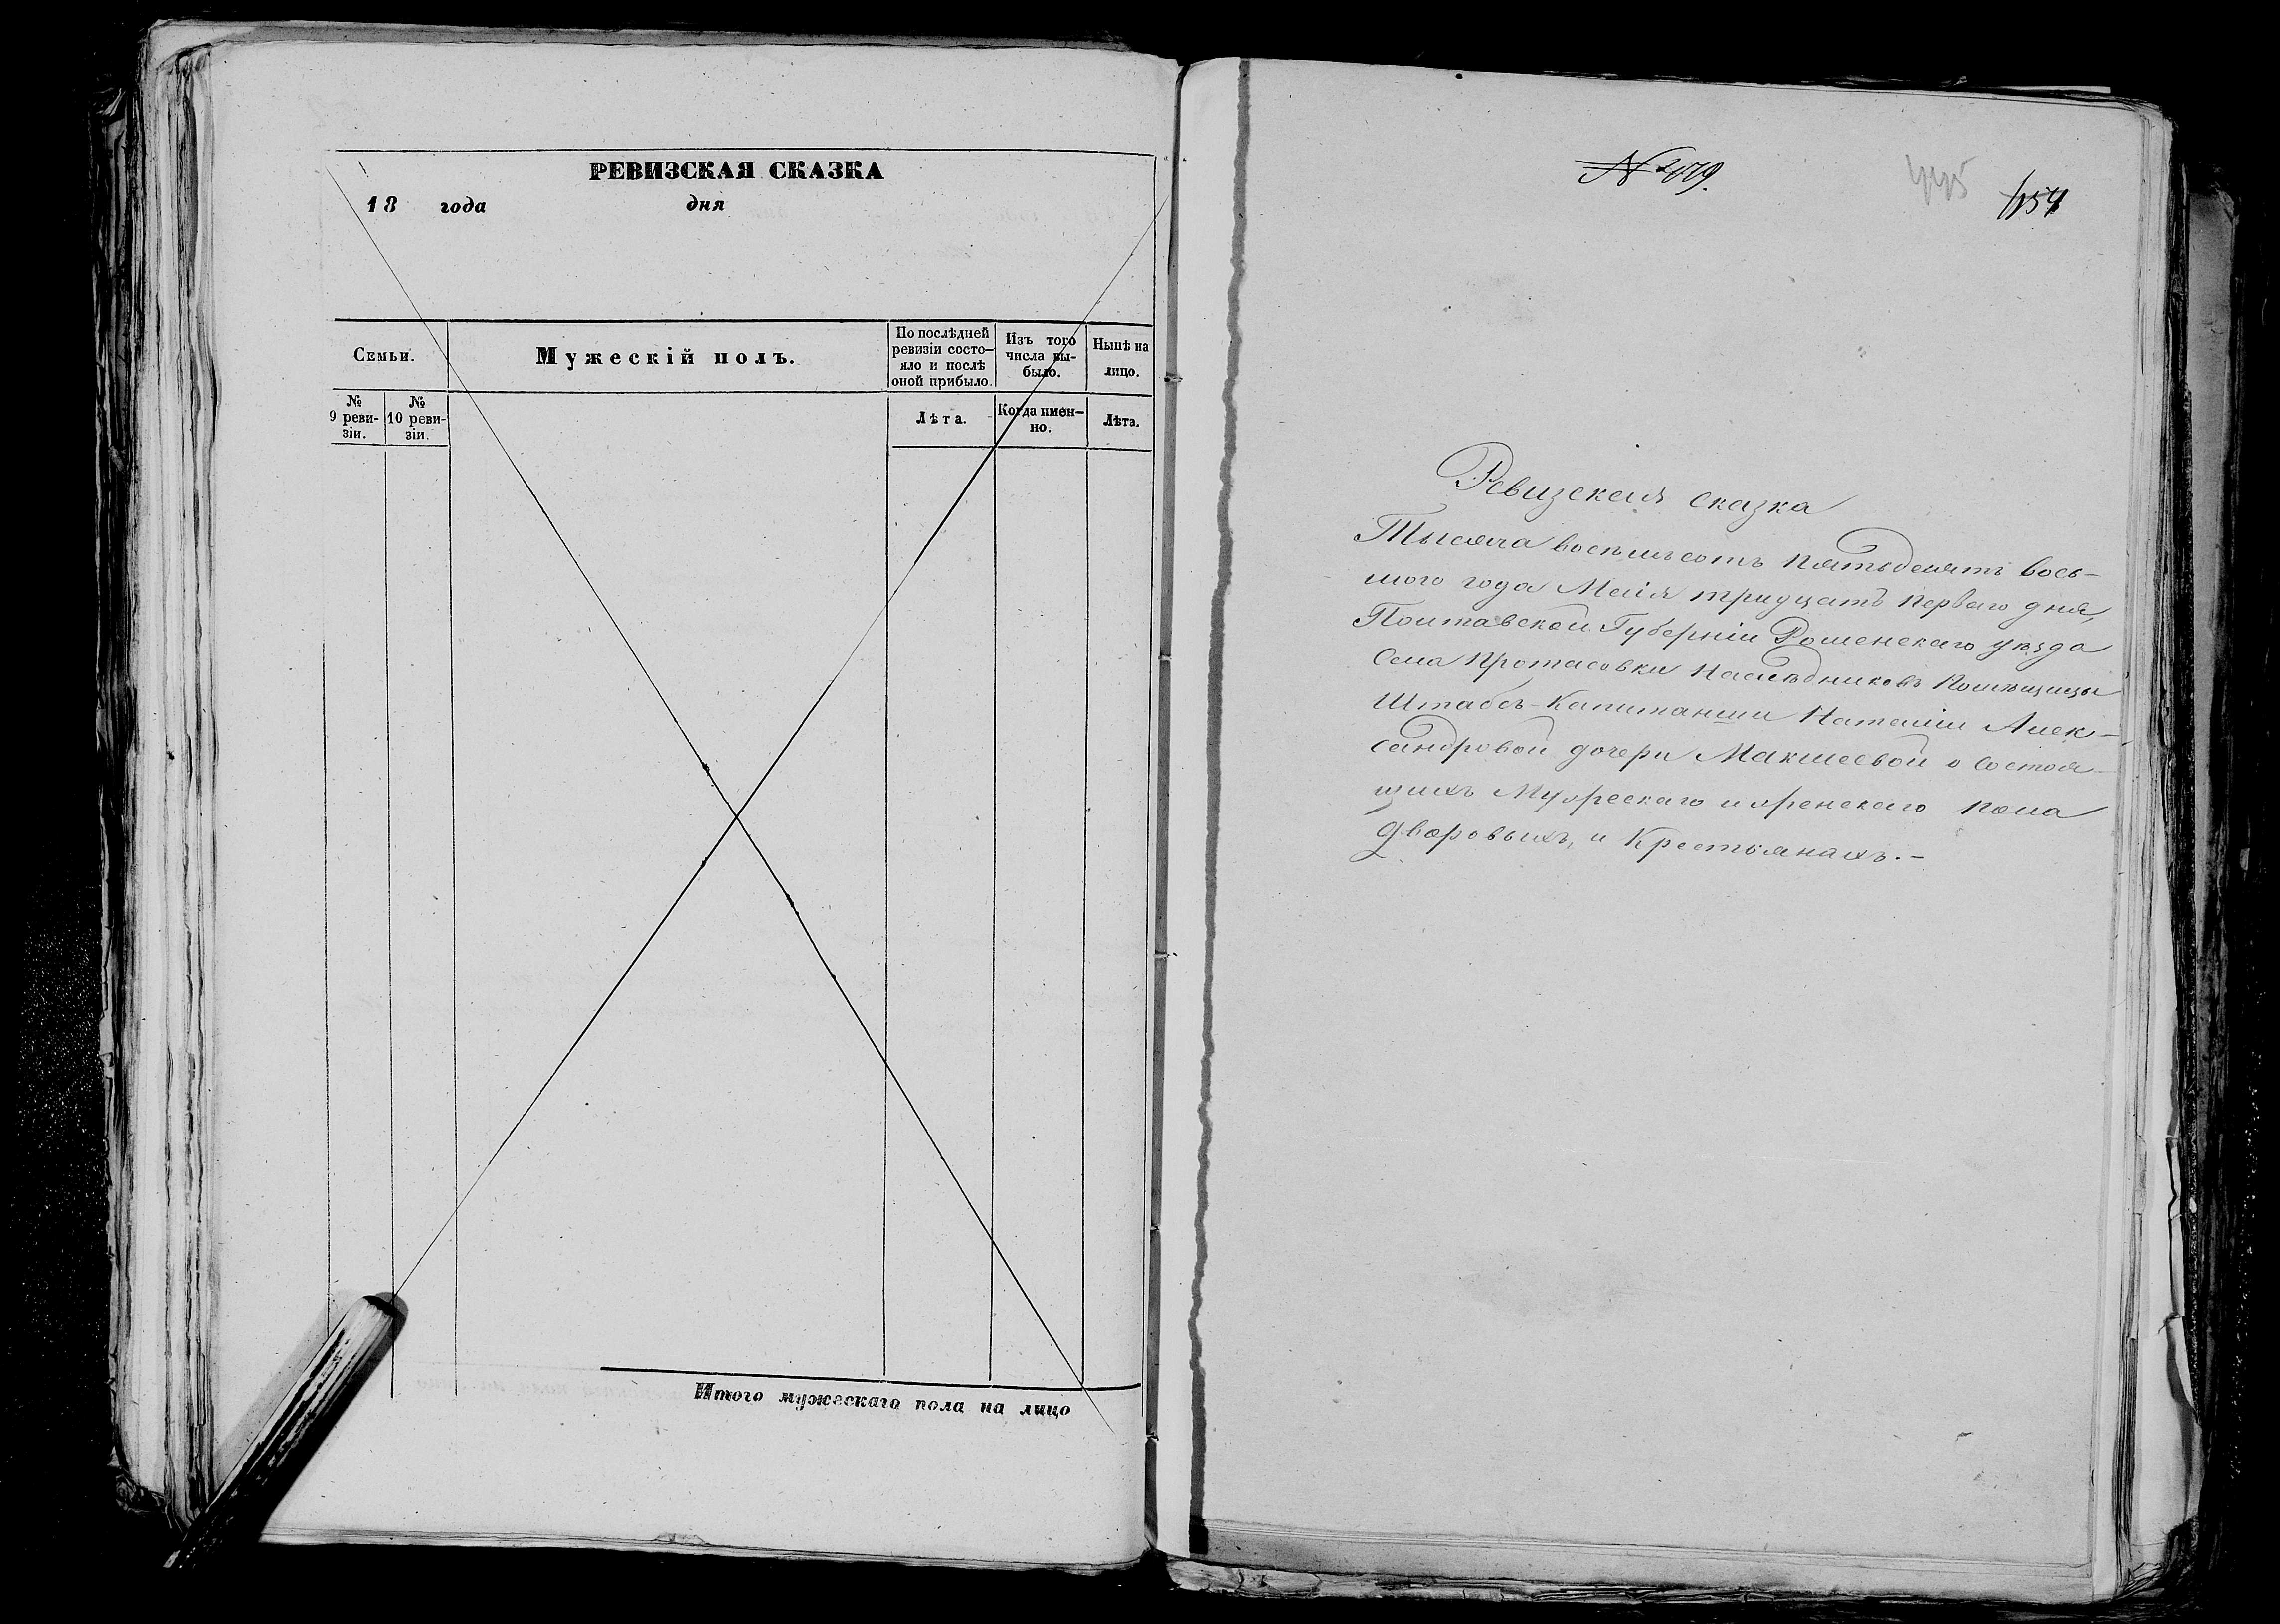 РЕВИЗСКАЯ СКАЗКА
18 года дня
Семьи.
Мужескій полъ.
По послѣдней
ревизіи состо-
яло и послѣ
оной прибыло.
Изъ того
числа вы-
было.
Нынѣ на
лицо.
№
9 реви-
зіи.
№
10 реви-
зіи.
Лѣта.
Когда имен-
но.
Лѣта.
Итого мужескаго пола на лицо
445
Ревизская сказка
Тысяча восемьсотъ пятьдесятъ вось-
мого года Маія тридцать перваго дня,
Полтавской Губерніи Роменскаго уѣзда
Села Протасовки Наслѣдниковъ Помѣщицы
Штабсъ-Капитанши Наталіи Алек-
сандровой дочери Макшеевой о состоя-
щихъ Мужескаго и женскаго пола
дворовыхъ, и Крестьянахъ.-